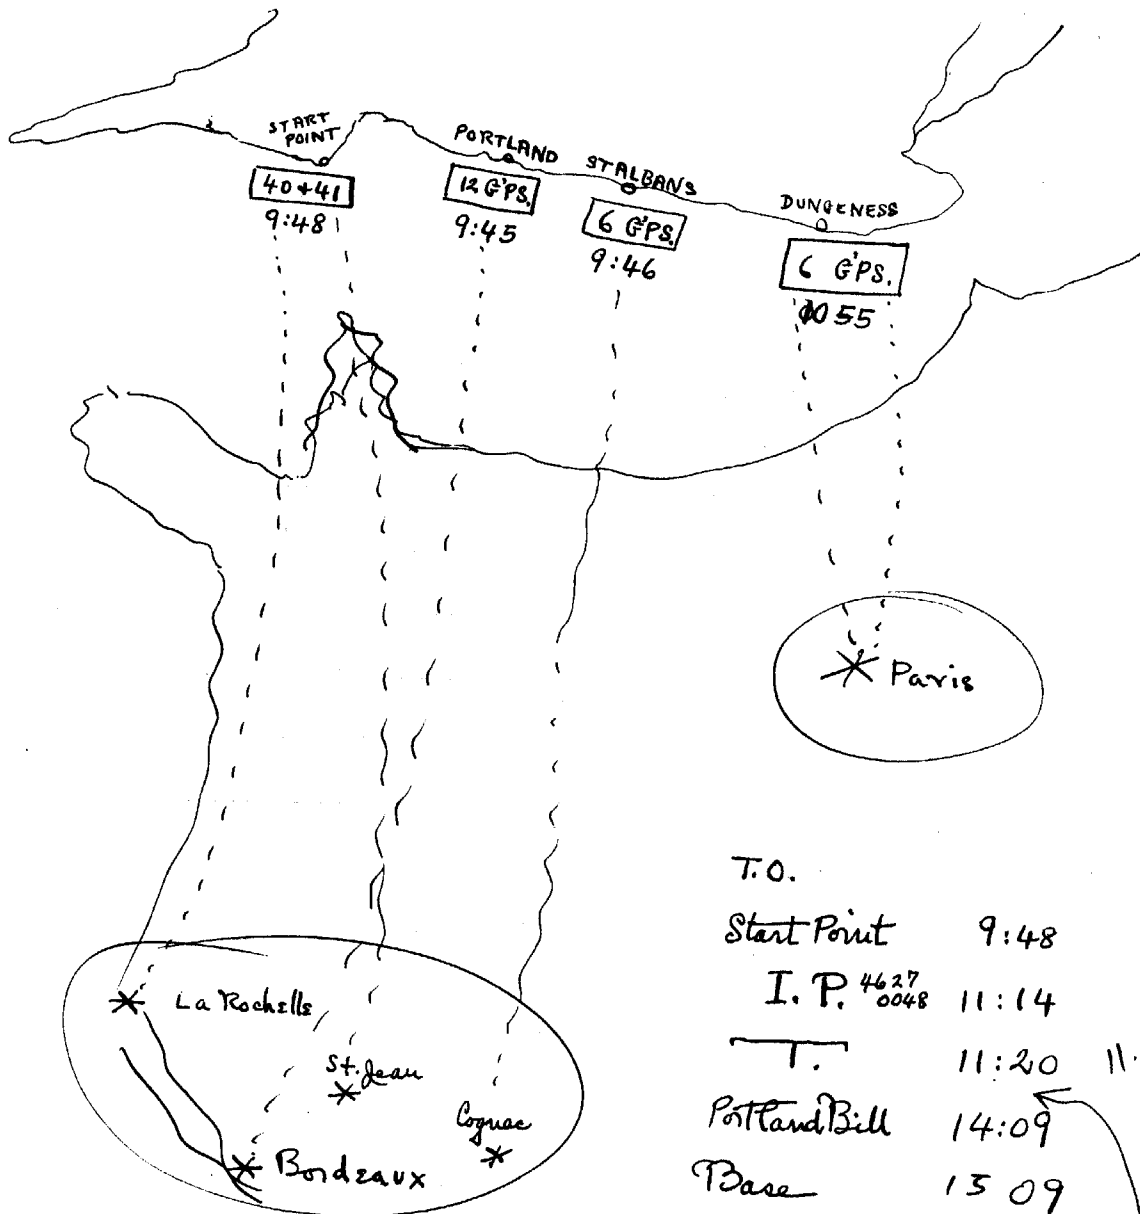 START
POINT
40 + 41
9:48
PORTLAND
12 G'PS.
9:45
ST ALBANS
6 G'PS.
9:46
DUNGENESS
6 G'PS.
1055
Paris
La Rochelle
St. Jean
Cognac
Bordeaux
T.O.
Start Point 9:48
I. P. 4627 0048 11:14
T. 11:20 11.
Portland Bill 14:09
Base 15 09